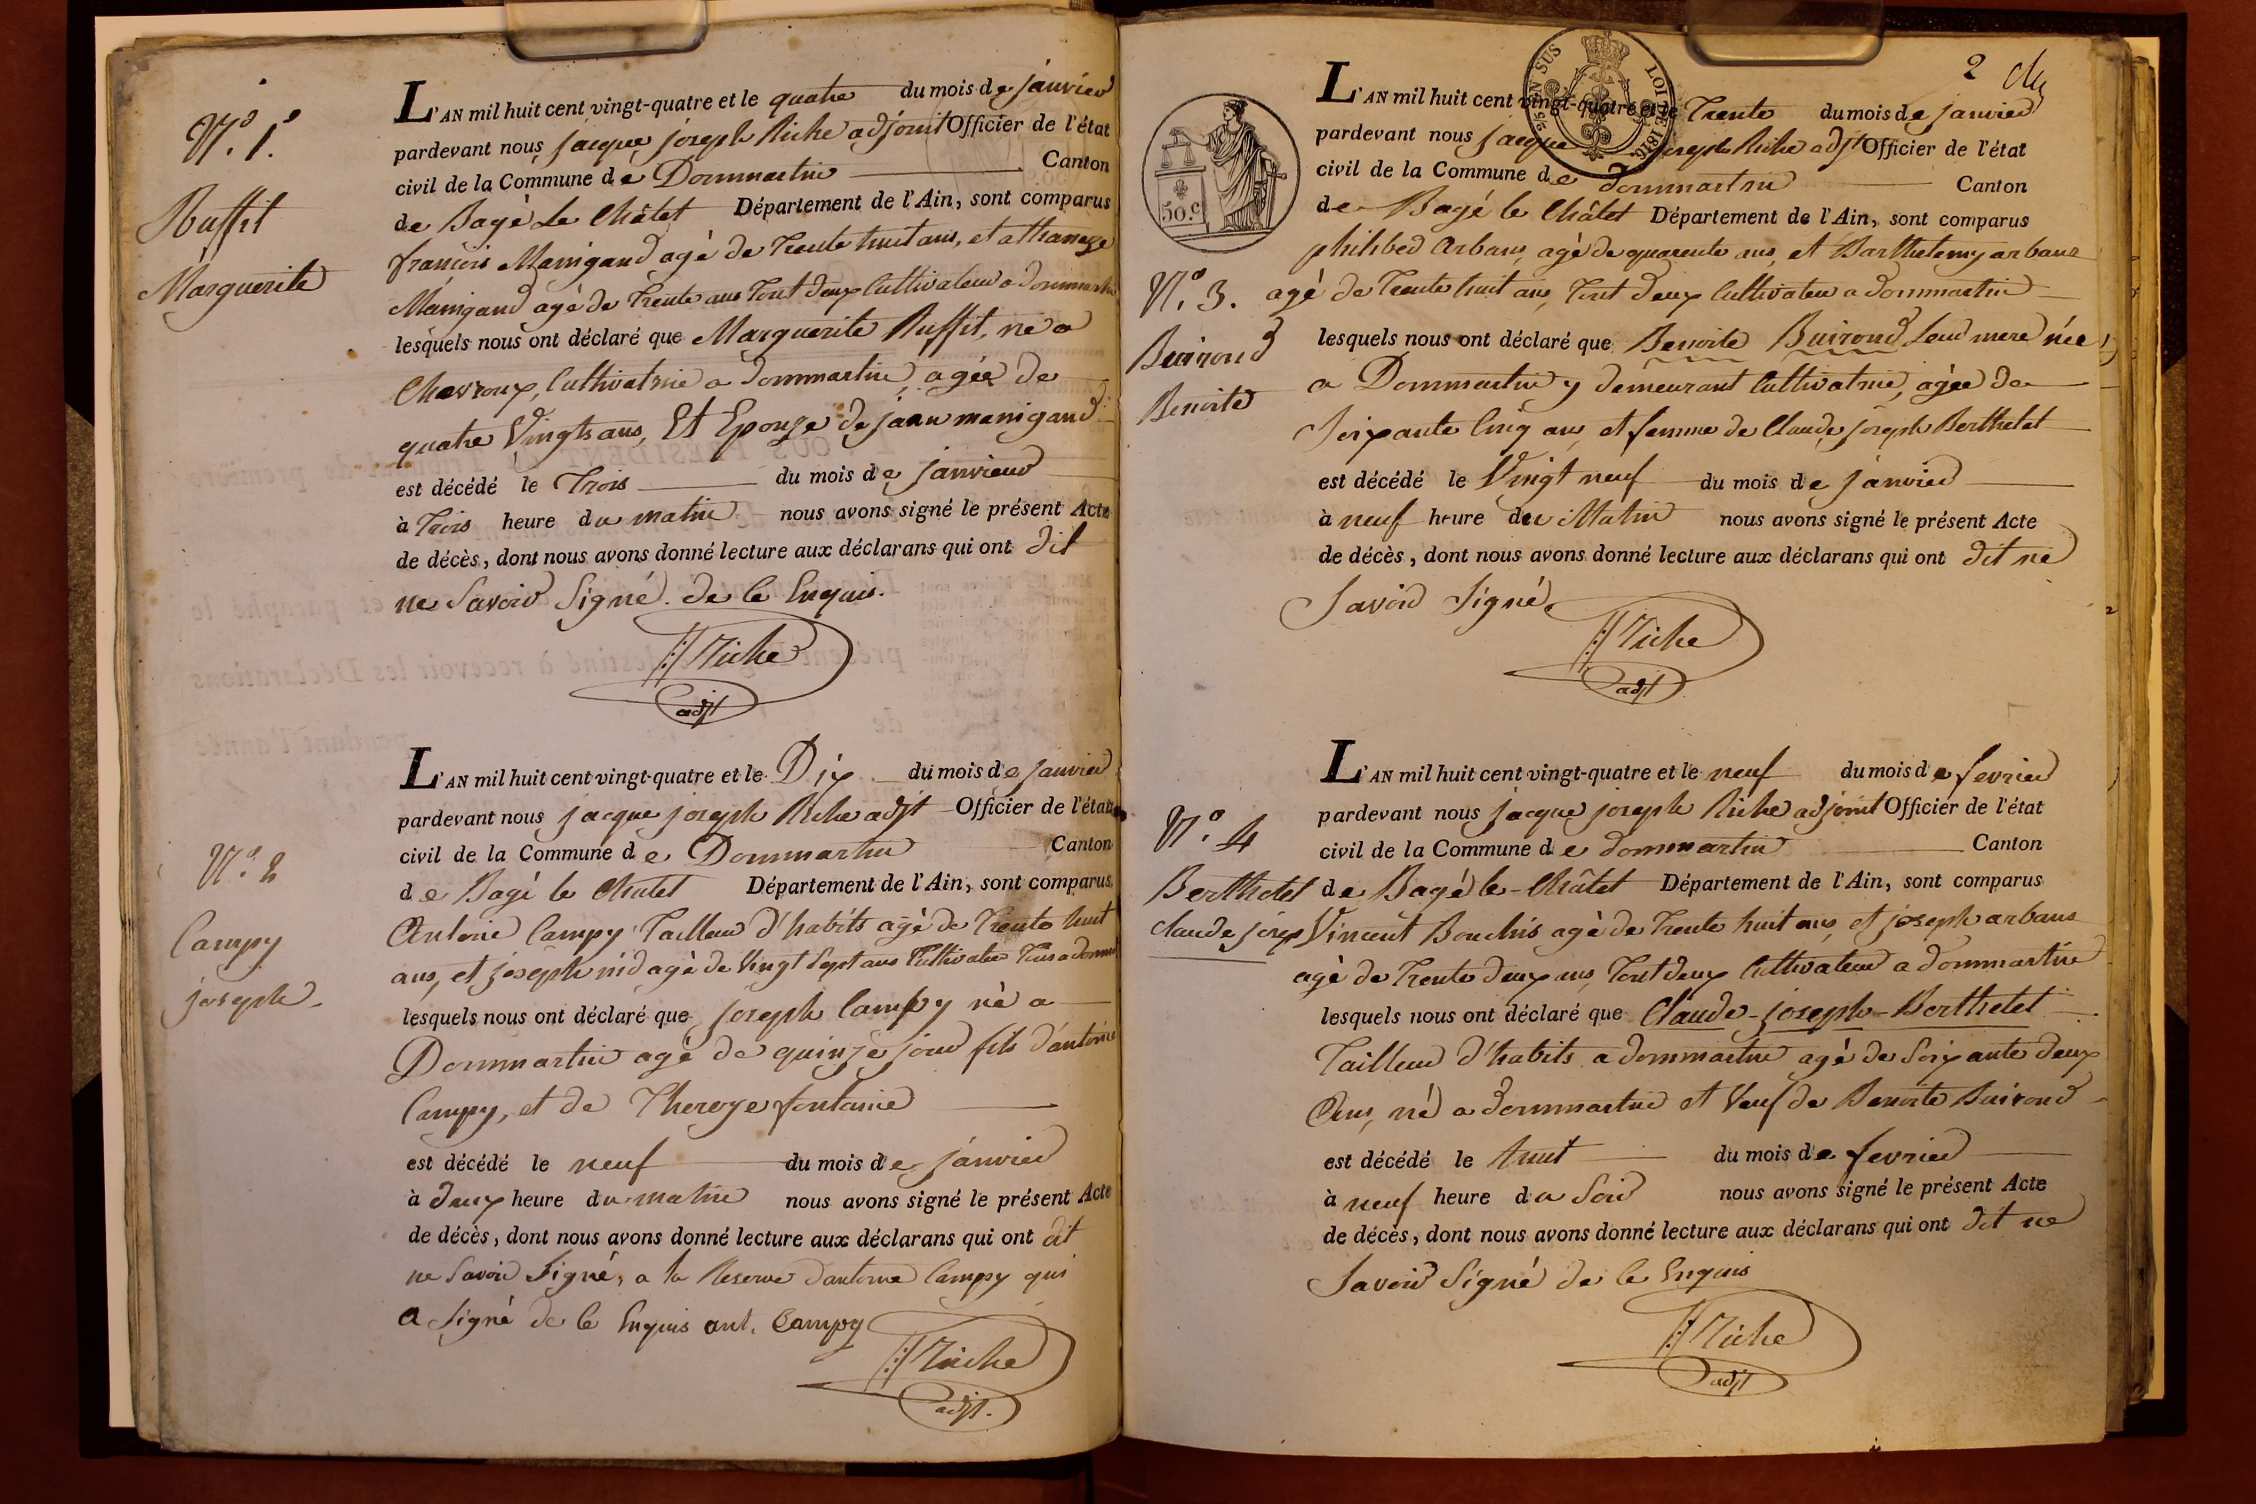 N.º 1.º
Ruffit
Marguerite
L'AN mil huit cent vingt-quatre et le quatre du mois de janvier
pardevant nous jacque joseph Riche adjoint Officier de l'état
civil de la Commune de Dommartin Canton
de Bagé Le Châtel Département de l'Ain, sont comparus
françois Manigand agé de Trente huit ans, et athanaze
Manigand agé de Trente ans Tout deux Cultivateur a dommartin
lesquels nous ont déclaré que Marguerite Ruffit, né a
Chavroux, Cultivatrice a dommartin, agée de
quatre Vingts ans, Et Epouze de jean manigand
est décédé le Trois du mois de janvier
à Trois heure du matin nous avons signé le présent Acte
de décès, dont nous avons donné lecture aux déclarans qui ont dit
ne Savoir Signé. de ce Enquis.
Riche
adjt
N.º 2
Campy
joseph
L'AN mil huit cent vingt-quatre et le Dix du mois de janvier
pardevant nous jacque joseph Riche adjt Officier de l'état
civil de la Commune de Dommartin Canton
de Bagé le Chatel Département de l'Ain, sont comparus
Antoine Campy Tailleur d'habits agé de Trente huit
ans, et joseph nid agé de Vingt Sept ans Cultivateur Tous a
lesquels nous ont déclaré que joseph Campy né a
Dommartin agé de quinze jour fils d'antoine
Campy, et de Thereze fontaine
est décédé le neuf du mois de janvier
à deux heure du matin nous avons signé le présent Acte
de décès, dont nous avons donné lecture aux déclarans qui ont dit
ne Savoir Signé, a la Reserve d'antoine Campy qui
a Signé de ce Enquis ant. Campy
Riche
adjt.
2
EN SUS
LOI DE 1816
50.c
L'AN mil huit cent vingt-quatre et le Trente du mois de janvier
pardevant nous jacque joseph Riche adjt Officier de l'état
civil de la Commune de dommartin Canton
de Bagé le Châtel Département de l'Ain, sont comparus
philibed Arbans, agé de quarente ans, et Barthelemy arbans
N.º 3.
Buirond
Benoite
agé de Trente huit ans, Tout deux Cultivateur a dommartin
lesquels nous ont déclaré que Benoite Buirond Leur mere née
a Dommartin y demeurant Cultivatrice, agée de
Soixante Cinq ans, et femme de Claude joseph Berthelet
est décédé le Vingt neuf du mois de janvier
à neuf heure du Matin nous avons signé le présent Acte
de décès, dont nous avons donné lecture aux déclarans qui ont dit ne
Savoir Signé.
Riche
adjt
L'AN mil huit cent vingt-quatre et le neuf du mois de fevrier
pardevant nous jacque joseph Riche adjoint Officier de l'état
civil de la Commune de dommartin Canton
N.º 4
Berthelet
claude josep
de Bagé le-Châtel Département de l'Ain, sont comparus
Vincent Bouchis agé de Trente huit ans, et joseph arbans
agé de Trente deux ans, Tout deux Cultivateur a dommartin
lesquels nous ont déclaré que Claude-joseph-Berthelet
Tailleur d'habits a dommartin agé de Soixante deux
Ans, né a dommartin et Veuf de Benoite Buirond
est décédé le huit du mois de fevrier
à neuf heure du Soir nous avons signé le présent Acte
de décès, dont nous avons donné lecture aux déclarans qui ont dit ne
Savoir Signé de ce Enquis
Riche
adjt